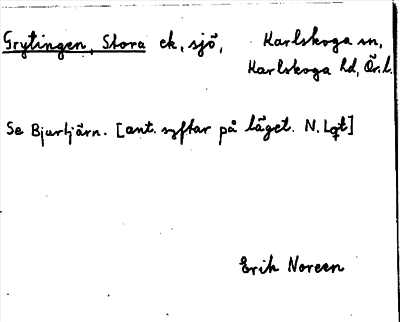 Grytingen, Stora ek, sjö, Karlskoga sn,
Karlskoga hd, Ör. l.
Se Bjurtjärn. [ant. syftar på läget. N. Lgt]
Erik Noreen